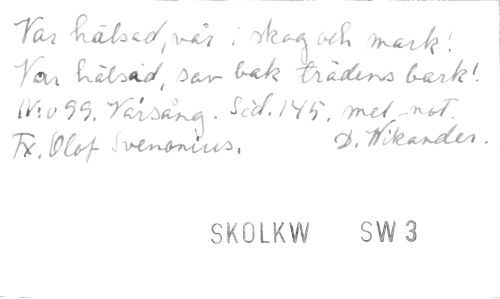 Var hälsad, vår i skog och mark!
Var hälsad, sav bak trädens bark!
N:o 99. Vårsång. Sid. 145. mel.-not.
Tx. Olof Svenonius. D. Wikander.
SKOLKW SW 3